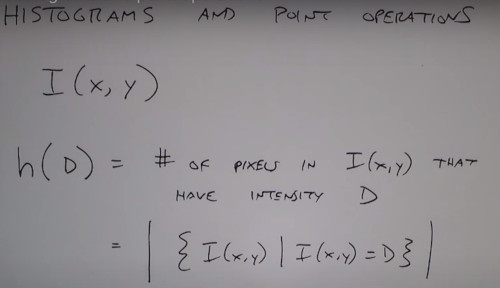 HISTOGRAMS AND POINT OPERATIONS
I(x,y)
h(D) = # OF PIXELS IN I(x,y) THAT
HAVE INTENSITY D
= | { I(x,y) | I(x,y) = D } |